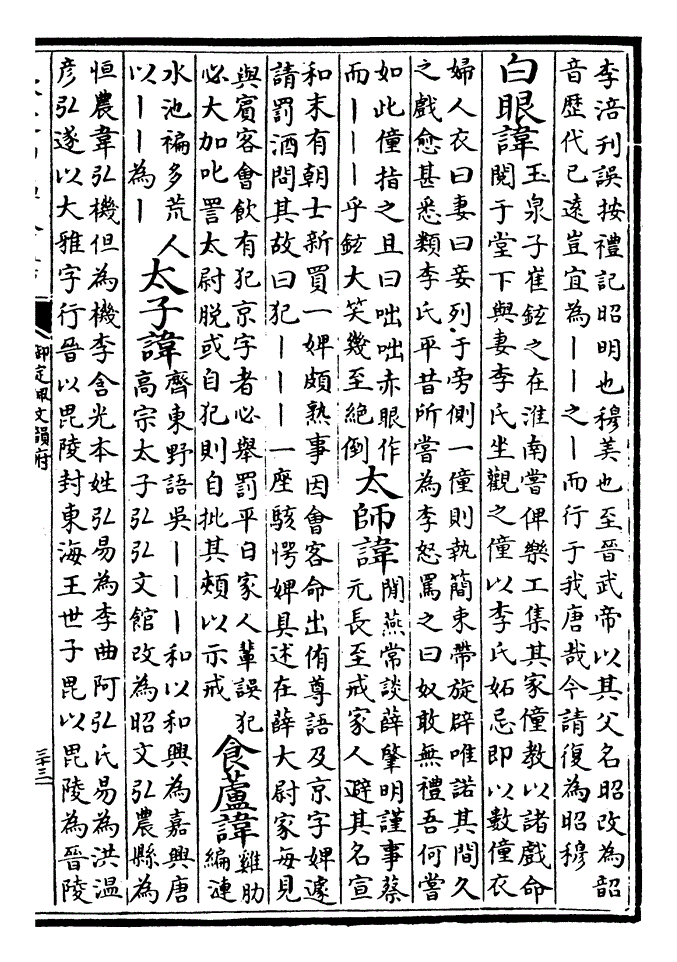 李涪刊誤按禮記昭明也穆美也至晉武帝以其父名昭改為韶
音歴代已逺豈宜為丨丨之丨而行于我唐哉今請復為昭穆
白眼諱
玉泉子崔鉉之在淮南嘗俾樂工集其家僮教以諸戲命
閱于堂下與妻李氏坐觀之僮以李氏妬忌即以數僮衣
婦人衣曰妻曰妾列于旁側一僮則執簡束帶旋辟唯諾其間久
之戲愈甚悉類李氏平昔所嘗為李怒罵之曰奴敢無禮吾何嘗
如此僮指之且曰咄咄赤眼作
而丨丨丨乎鉉大笑幾至絶倒
太師諱
閒燕常談薛肇明謹事蔡
元長至戒家人避其名宣
和末有朝士新買一婢頗熟事因會客命出侑尊語及京字婢遽
請罰酒問其故曰犯丨丨丨一座駭愕婢具述在薛大尉家每見
與賓客會飲有犯京字者必舉罰平日家人輩誤犯
必大加叱詈太尉脱或自犯則自批其頰以示戒
食蘆諱
雞肋
編漣
水池褊多荒人
以丨丨為丨
太子諱
齊東野語吳丨丨丨和以和興為嘉興唐
高宗太子弘弘文館改為昭文弘農縣為
恒農韋弘機但為機李含光本姓弘易為李曲阿弘氏易為洪温
彦弘遂以大雅字行晉以毘陵封東海王世子毘以毘陵為晉陵
御定佩文韻府
三十三